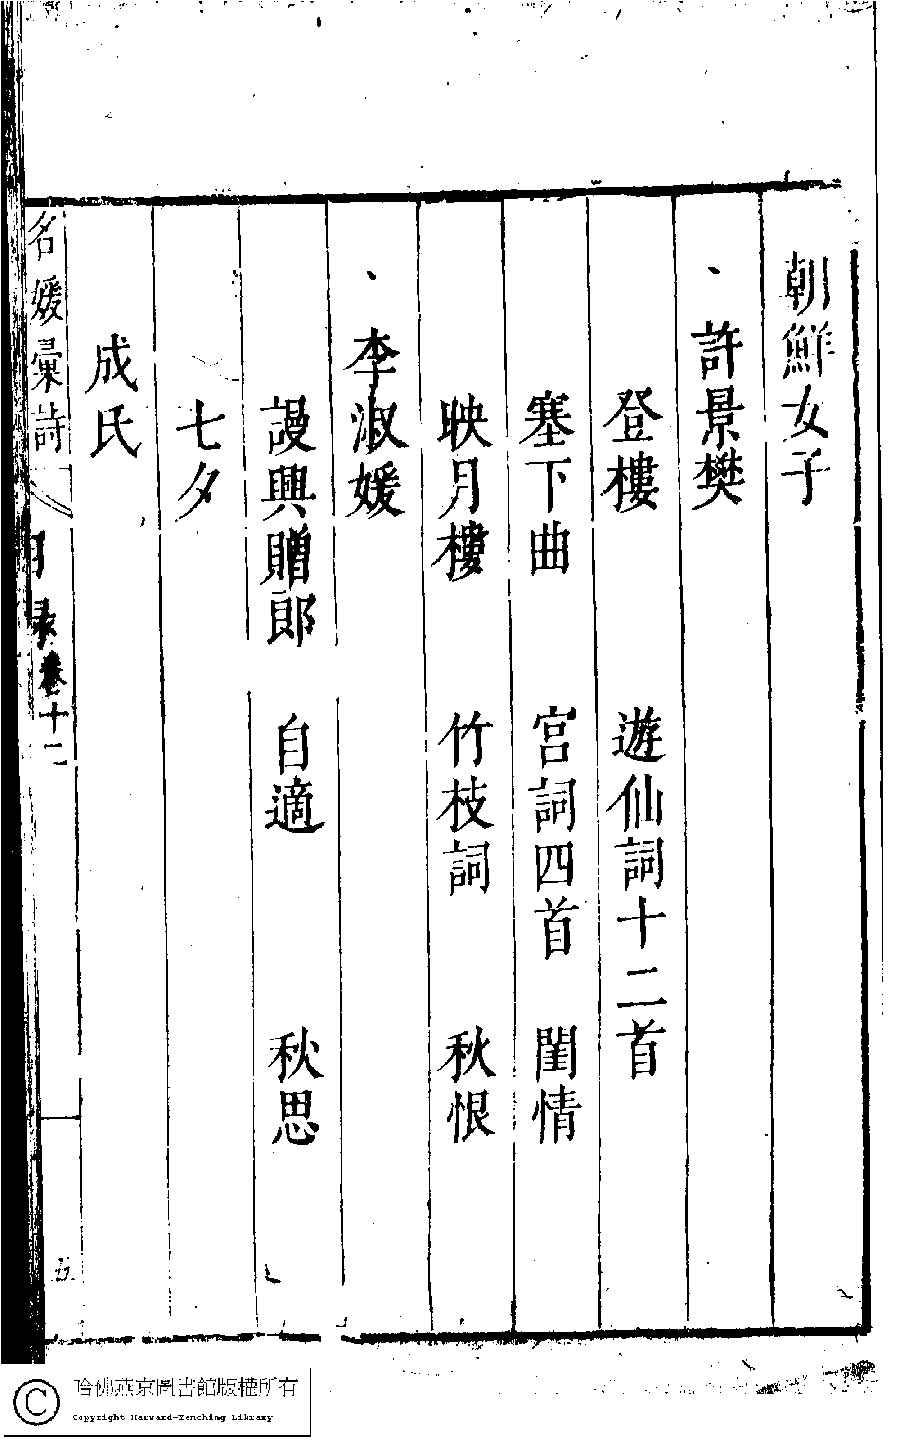 朝鮮女子
許景樊
登樓 遊仙詞十二首
塞下曲 宮詞四首 閨情
映月樓 竹枝詞 秋恨
李淑媛
謾興贈郎 自適 秋思
七夕
成氏
名媛彙詩 目錄卷十二 五
哈佛燕京圖書館版權所有
Copyright Harvard-Yenching Library